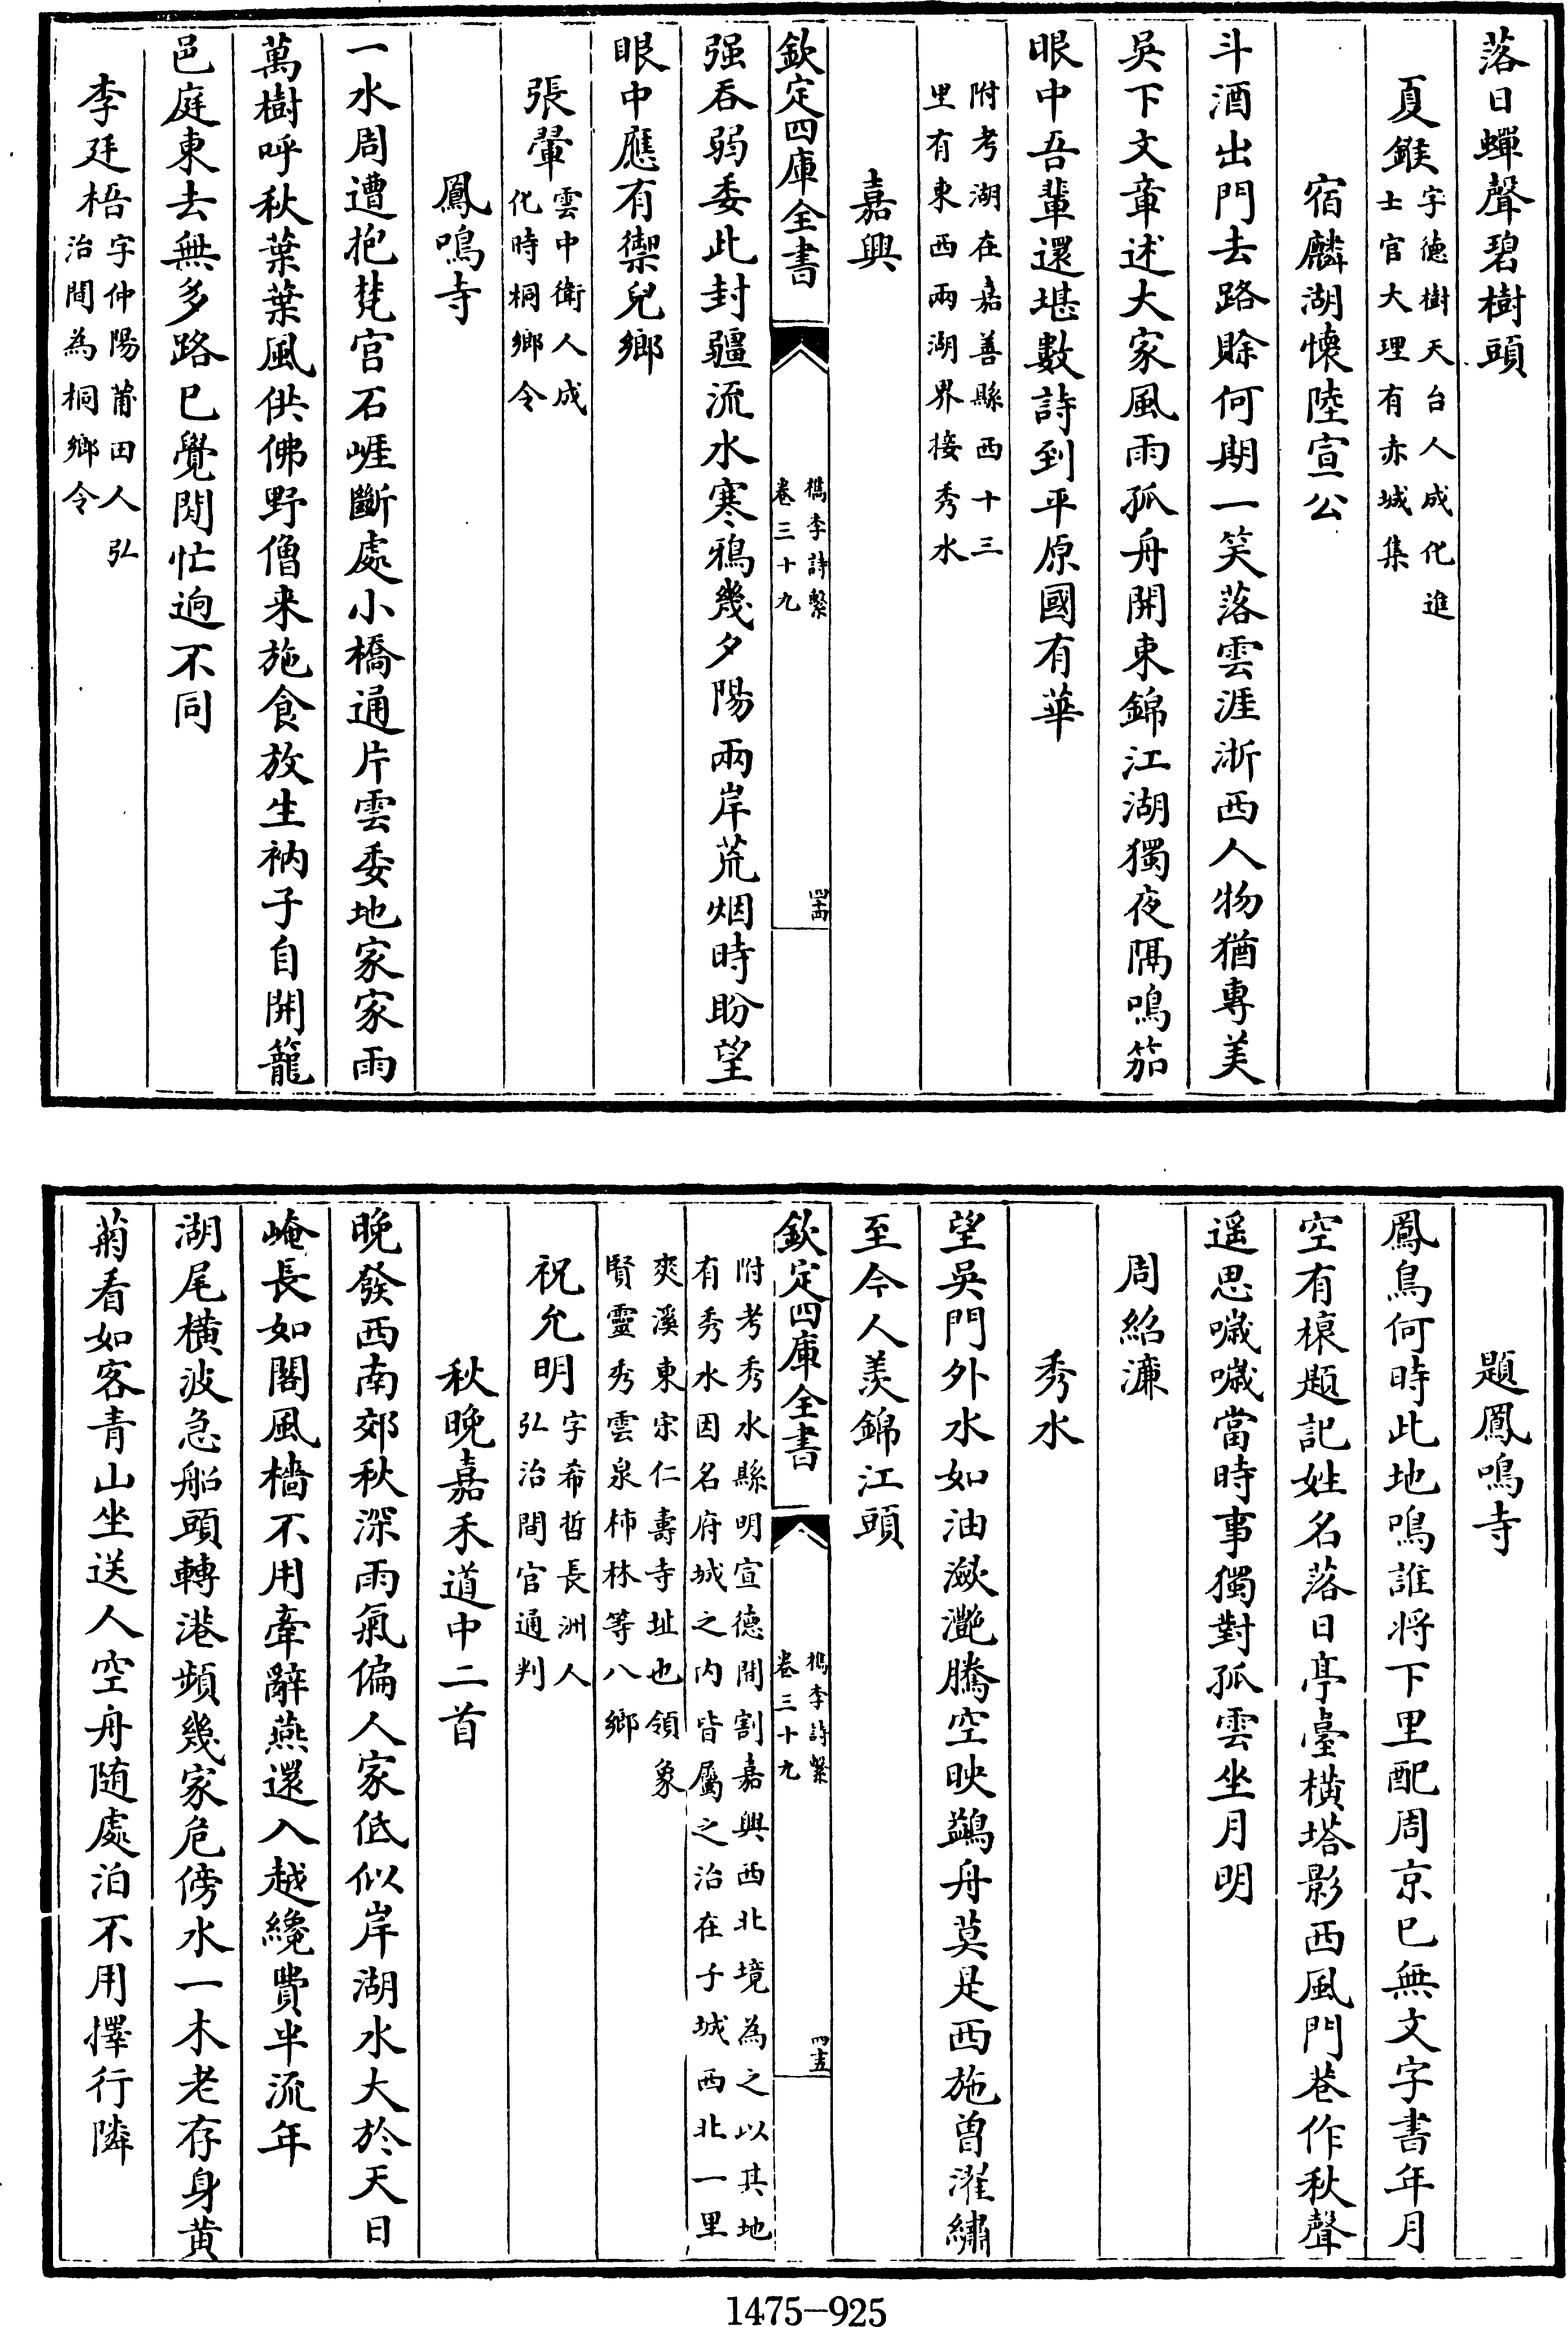 落日蟬聲碧樹頭
夏鍭字德樹天台人成化進
士官大理有赤城集
宿麟湖懷陸宣公
斗酒出門去路賒何期一笑落雲涯浙西人物猶專美
吳下文章述大家風雨孤舟開東錦江湖獨夜隔鳴笳
眼中吾輩還堪數詩到平原國有華
附考湖在嘉善縣西十三
里有東西兩湖界接秀水
嘉興
欽定四庫全書
檇李詩繫
卷三十九
四十四
强吞弱委此封疆流水寒鴉幾夕陽兩岸荒烟時盼望
眼中應有禦兒鄉
張翬雲中衛人成
化時桐鄉令
鳳鳴寺
一水周遭抱梵宫石崕斷處小橋通片雲委地家家雨
萬樹呼秋葉葉風供佛野僧来施食放生衲子自開籠
邑庭東去無多路已覺閒忙逈不同
李廷梧字仲陽莆田人弘
治間為桐鄉令
題鳳鳴寺
鳳鳥何時此地鳴誰将下里配周京已無文字書年月
空有榱題記姓名落日亭臺横塔影西風門巷作秋聲
遥思噦噦當時事獨對孤雲坐月明
周紹濂
秀水
望吳門外水如油瀲灔騰空映鷁舟莫是西施曾濯繡
至今人羡錦江頭
欽定四庫全書
檇李詩繫
卷三十九
四十五
附考秀水縣明宣德間割嘉興西北境為之以其地
有秀水因名府城之内皆屬之治在子城西北一里
爽溪東宋仁壽寺址也領象
賢靈秀雲泉柿林等八鄉
祝允明字希哲長洲人
弘治間官通判
秋晚嘉禾道中二首
晚發西南郊秋深雨氣偏人家低似岸湖水大於天日
崦長如閣風檣不用牽辭燕還入越纔費半流年
湖尾横波急船頭轉港頻幾家危傍水一木老存身黄
菊看如客青山坐送人空舟随處泊不用擇行隣
1475-925